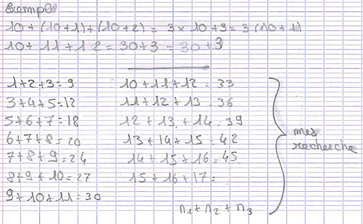 Exemple
10 + (10+1) + (10+2) = 3 × 10 + 3 = 3 (10+1)
10 + 11 + 12 = 30+3 = 30+3
1+2+3=9
3+4+5=12
5+6+7=18
6+7+8=20
7+8+9=24
8+9+10=27
9+10+11=30
10+11+12=33
11+12+13=36
12+13+14=39
13+14+15=42
14+15+16=45
15+16+17=
mes
recherche
n1+n2+n3